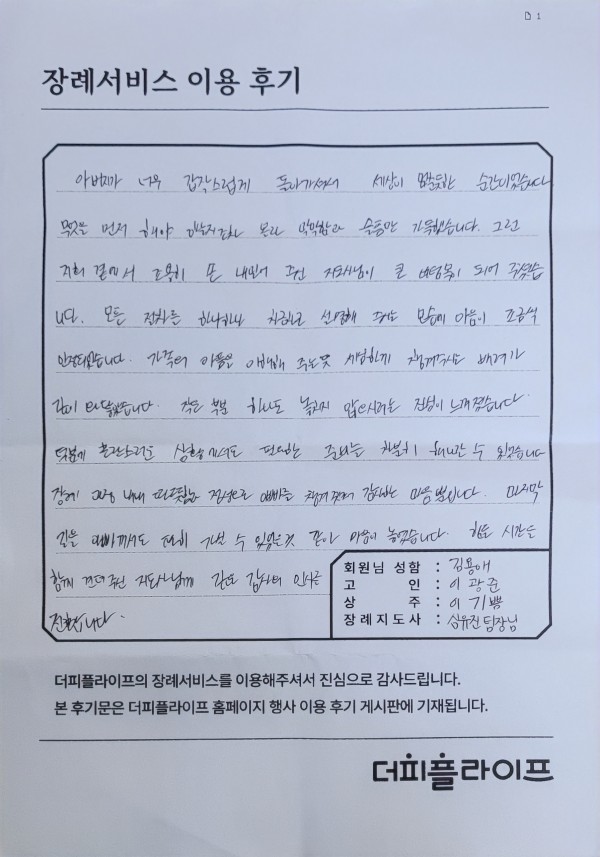 1
장례서비스 이용 후기
아버지가 너무 갑작스럽게 돌아가셔서 세상이 멈춘듯한 순간이었습니다
무엇을 먼저 해야 할지조차 몰라 막막함과 슬픔만 가득했습니다. 그런
저희 곁에서 조용히 손 내밀어 주신 지도사님이 큰 버팀목이 되어 주셨습
니다. 모든 절차를 하나하나 차분하고 설명해 주시는 모습에 마음이 조금씩
안정되었습니다. 가족의 아픔을 이해해 주는듯 세심하게 챙겨주시는 배려가
깊이 와 닿았습니다. 작은 부분 하나도 놓치지 않으시려는 진심이 느껴졌습니다
덕분에 혼란스러운 상황에서도 필요한 준비를 차분히 해나갈 수 있었습니다
장례 과정 내내 따뜻한 정성으로 아빠를 챙겨주셔 감사한 마음뿐입니다. 마지막
길을 아빠께서도 편히 가실 수 있었을것 같아 마음이 놓였습니다. 힘든 시간을
함께 견뎌주신 지도사님께 깊은 감사의 인사를
전합니다.
회원님 성함 : 김용애
고 인 : 이광준
상 주 : 이기쁨
장례지도사 : 심유진팀장님
더피플라이프의 장례서비스를 이용해주셔서 진심으로 감사드립니다.
본 후기문은 더피플라이프 홈페이지 행사 이용 후기 게시판에 기재됩니다.
더피플라이프